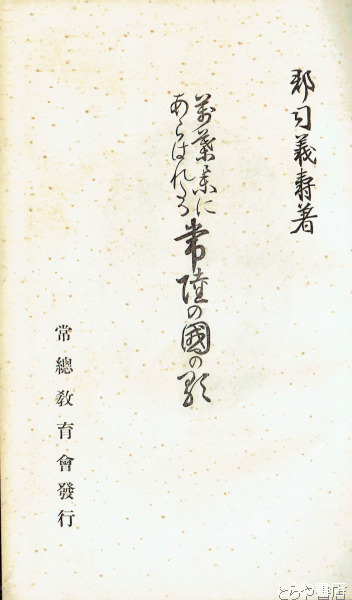 郡司義壽著
萬葉集に
あらはれたる
常陸の國の歌
常總敎育會發行
とらや書店